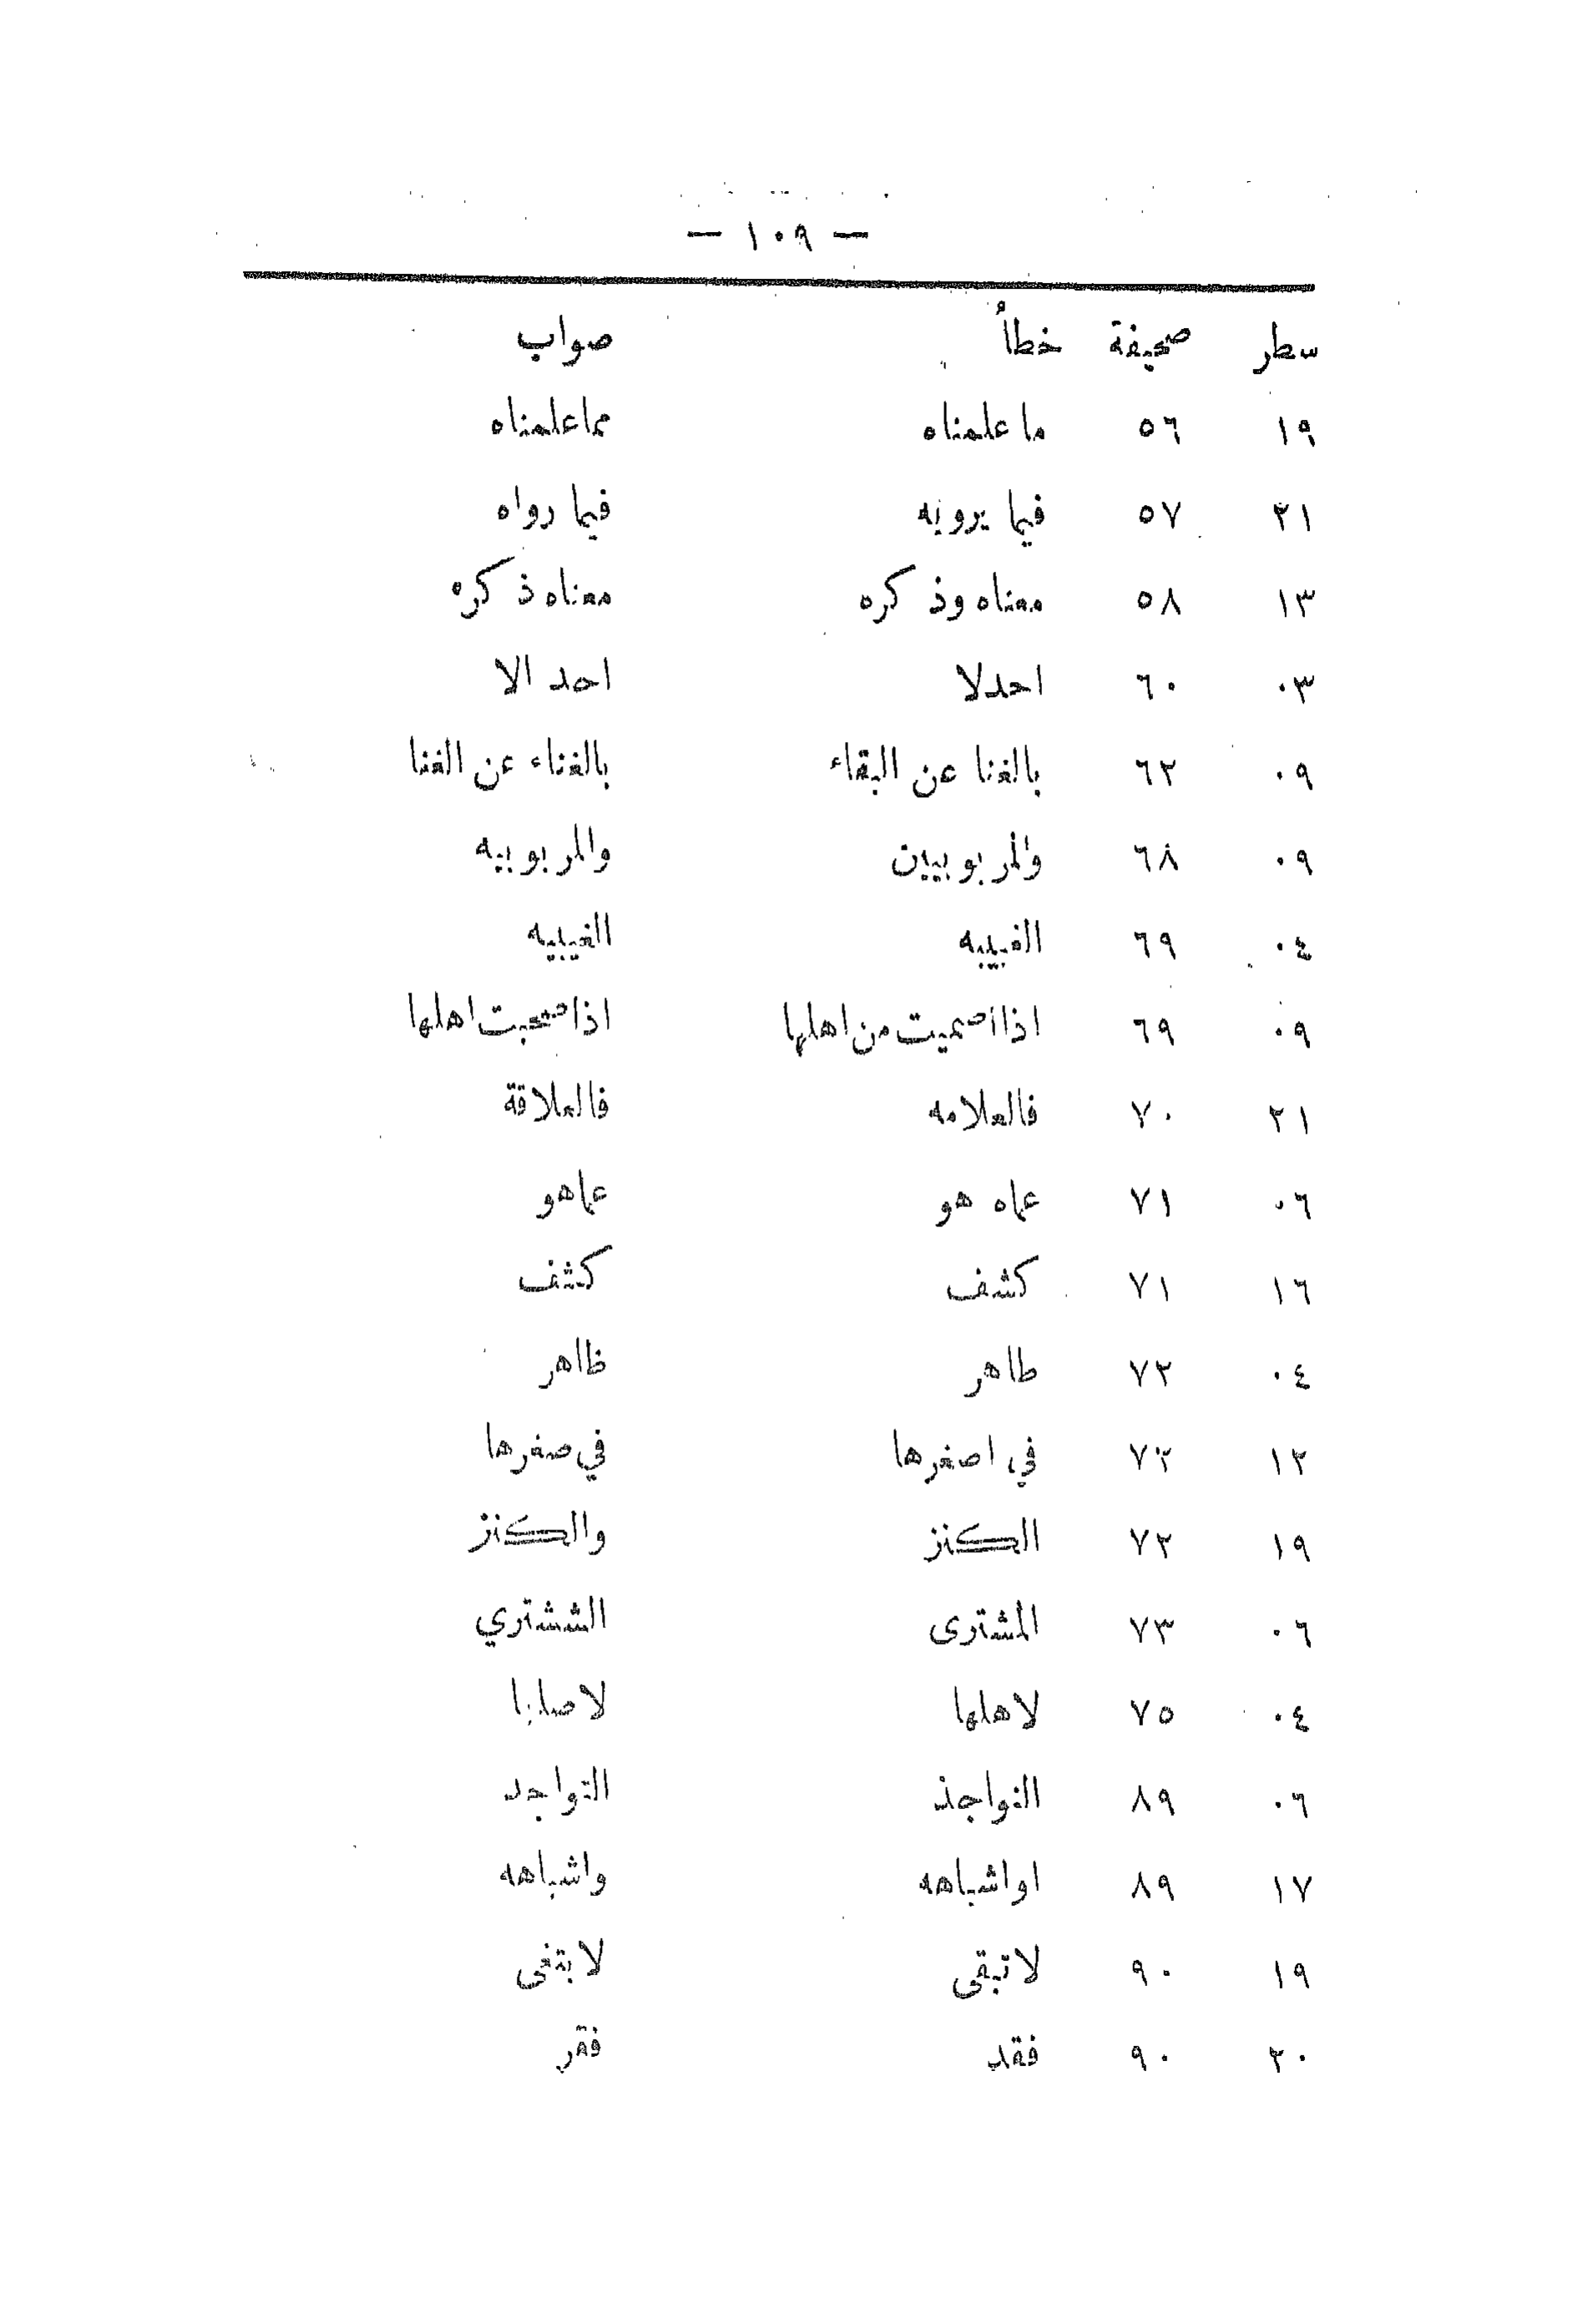 — ١٠٩ —
سطر صحيفة خطأ صواب
١٩ ٥٦ ما علمناه مماعلمناه
٢١ ٥٧ فيما يرويه فيما رواه
١٣ ٥٨ معناه وذكره معناه ذكره
٠٣ ٦٠ احدلا احد الا
٠٩ ٦٢ بالغنا عن البقاء بالغناء عن الغنا
٠٩ ٦٨ والمربوبيين والمربوبيه
٠٤ ٦٩ الغيبيه
٠٩ ٦٩ من اهلها اهلها
٢١ ٧٠ فالعلامه فالعلاقة
٠٦ ٧١ عماه هو عماهو
١٦ ٧١ كشف كثف
٠٤ ٧٢ طاهر ظاهر
١٢ ٧٢ في اصغرها في صغرها
١٩ ٧٢ الكنز والكنز
٠٦ ٧٣ المشترى الششتري
٠٤ ٧٥ لاهلها
٠٦ ٨٩ النواجذ التواجد
١٧ ٨٩ اواشباهه واشباهه
١٩ ٩٠ لاتبقى
٢٠ ٩٠ فقد فقر